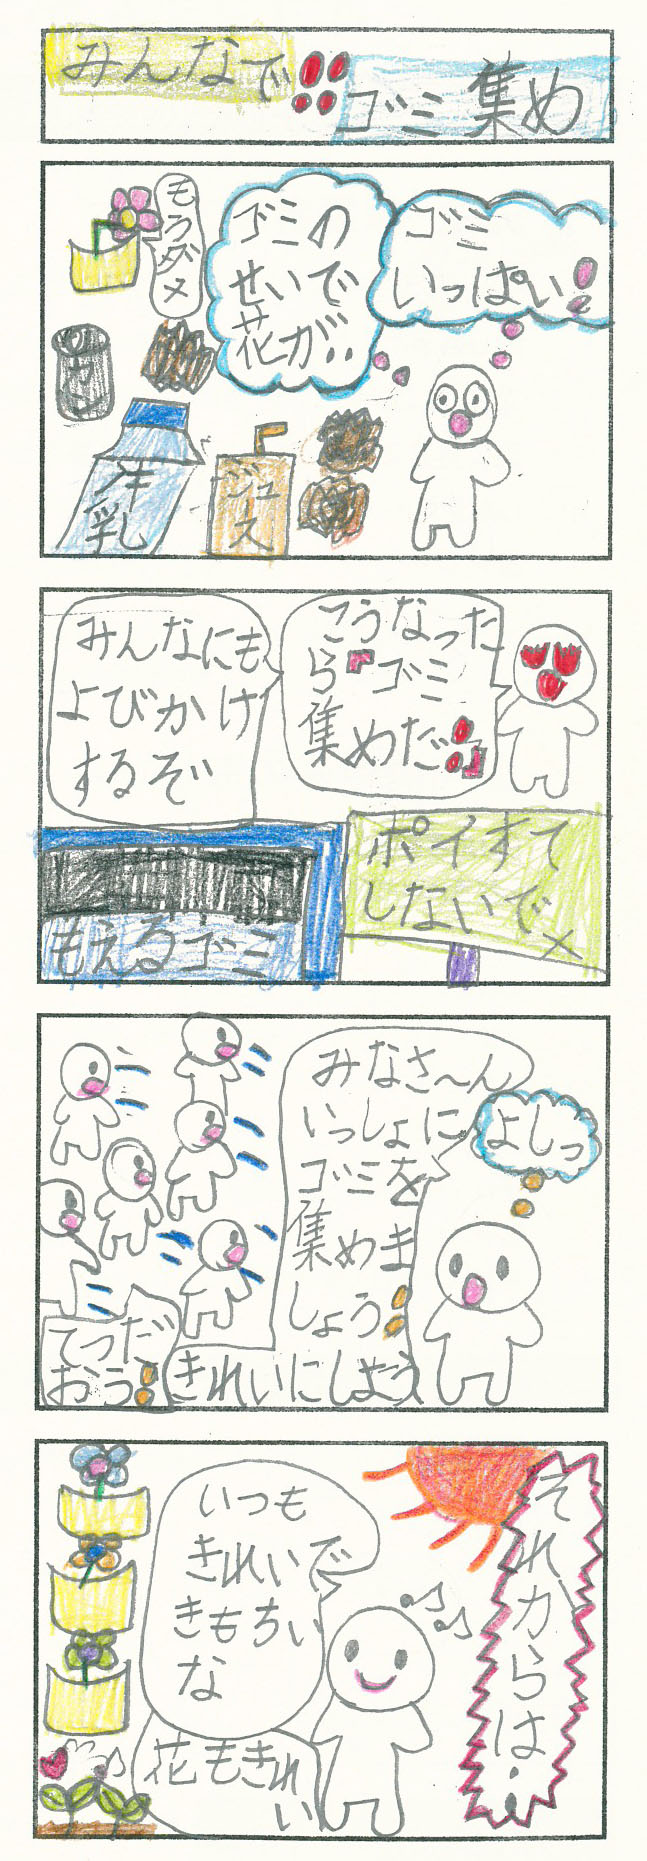 みんなで!!
ゴミ集め
ゴミ
いっぱい!
ゴミの
せいで
花が‥
もうダメ
カン
牛乳
ジュース
こうなった
ら『ゴミ
集めだ!!』
みんなにも
よびかけ
するぞ
ポイすて
しないで
もえるゴミ
よしっ
みなさ〜ん
いっしょに
ゴミを
集めま
しょう!!
きれいにしよう
てつだ
おう!!
それからは・・
いつも
きれいで
きもちい
な
花もきれ
い